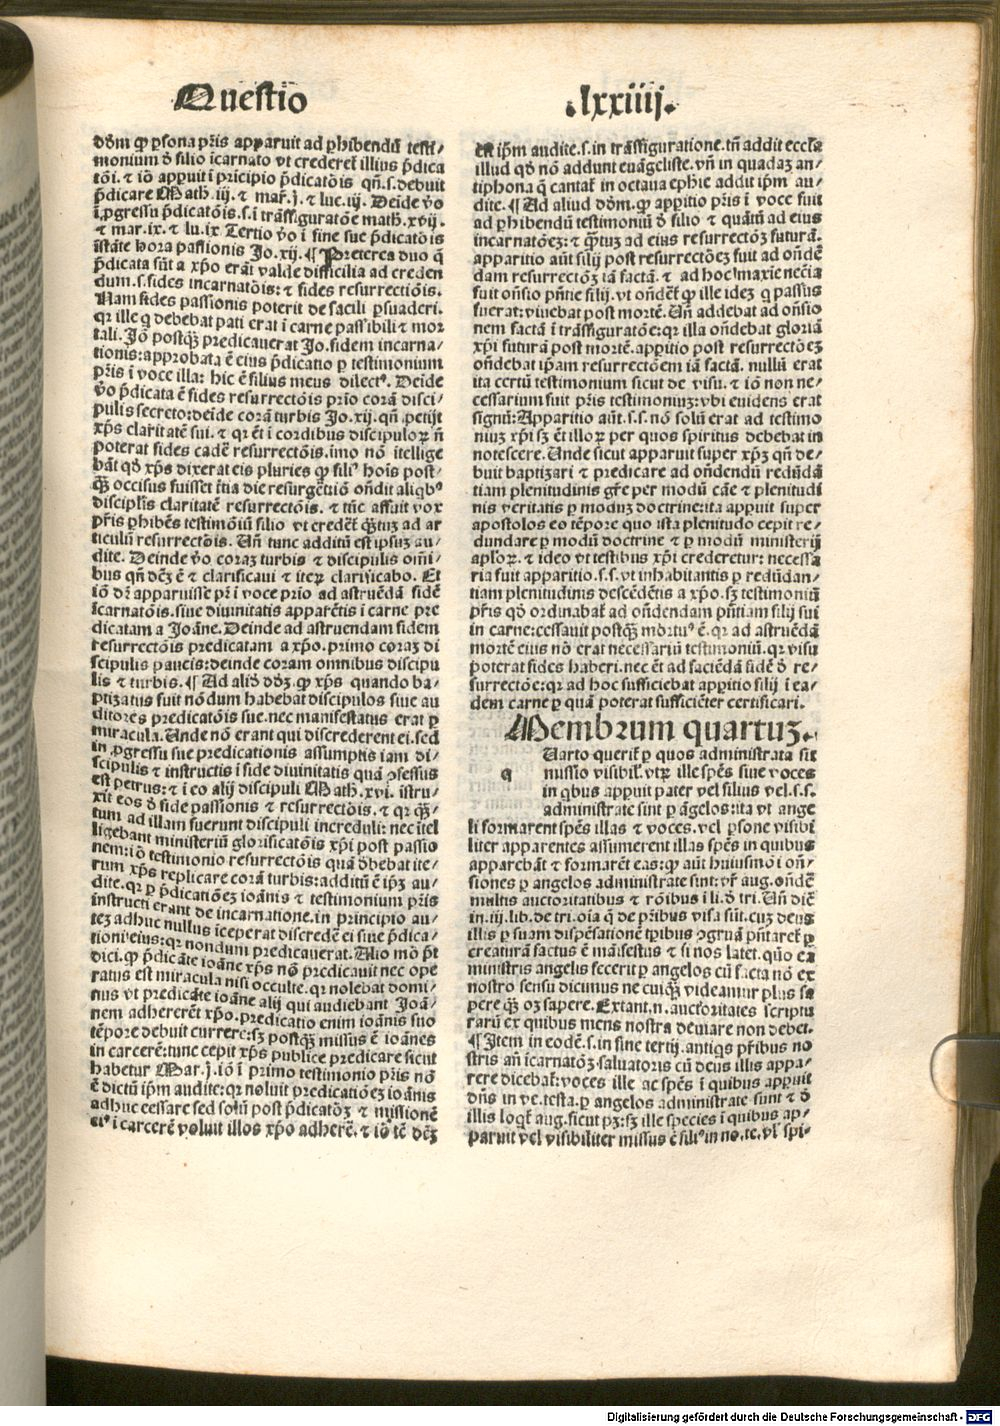 Questio
.lxxiiij.
dōm ꝙ ꝑsona pr̄is apparuit ad ꝑhibendū testi/
monium ď filio īcarnato vt crederet̄ illius p̄dica
tōi. ⁊ iō appuit ī pricipio p̄dicatōis qn̄.s.debuit
p̄dicare Math.iij. ⁊ mar̄.j. ⁊ luc.iij. Deīde v̄o
ī ꝓgressu p̄dicatōis.s.ī trāsfiguratōe math.xvij.
⁊ mar.ix. ⁊ lu.ix. Tertio v̄o ī fine sue p̄dicatōis
īstāte hora passionis Jo.xij. ¶ Preterea duo q̄
p̄dicata sūt a xp̄o erāt valde difficilia ad creden
dum.s.fides incarnatōis: ⁊ fides resurrectiōis.
Nam fides passionis poterit de facili ꝑsuaderi.
qr ille q debebat pati erat ī carne passibili ⁊ mor
tali. Jō postqꝫ predicauerat Jo.fidem incarna/
tionis:approbata ē eius p̄dicatio ꝑ testimonium
pr̄is ī voce illa: hic ē filius meus dilectꝰ. Deīde
v̄o p̄dicata ē fides resurrectōis prīo corā disci/
pulis secreto:deīde corā turbis Jo.xij. qn̄ petijt
xp̄s claritatē sui. ⁊ qr ēt ī cordibus discipulorꝫ n̄
poterat fides cadē resurrectōis.imo nō ītellige
bāt qď xp̄s dixerat eis pluries ꝙ filiꝰ hoīs post/
qꝫ occisus fuisset t̄tia die resurgēt:iō on̄dit aliqbꝰ
disciplis claritatē resurrectōis. ⁊ tūc affuit vox
pr̄is ꝑhibēs testimōiū filio vt credēt̄ qꝫtuꝫ ad ar
ticulū resurrectōis. Un̄ tunc additū est ipsuꝫ au/
dite. Deinde v̄o coraꝫ turbis ⁊ discipulis om̄i/
bus qn̄ dc̄ꝫ ē ⁊ clarificaui ⁊ iterꝫ clarificabo. Et
iō dr̄ apparuisse pr̄ ī voce prīo ad astruēdā fidē
īcarnatōis.siue diuinitatis apparētis ī carne pre
dicatam a Joāne. Deinde ad astruendam fidem
resurrectōis predicatam a xp̄o.primo coraꝫ di
scipulis paucis:deinde coram omnibus discipu
lis ⁊ turbis. ¶ Ad aliď dōꝫ. ꝙ xp̄s quando ba/
ptizatus fuit nōdum habebat discipulos siue au
ditores predicatōis sue.nec manifestatus erat ꝑ
miracula. Unde nō erant qui discrederent ei.sed
in ꝓgressu sue predicationis assumptis iam di/
scipulis ⁊ instructis ī fide diuinitatis quā ꝯfessus
est petrus: ⁊ ī eo alij discipuli Math.xvi. istru/
xit eos ď fide passionis ⁊ resurrectōis. ⁊ qr qꝫ/
tum ad illam fuerunt discipuli increduli: nec ītel
ligebant ministeriū glorificatōis xp̄i post passio
nem:iō testimonio resurrectōis quā ďbebat ite/
rum xp̄s replicare corā turbis:additū ē ipꝫ au/
dite.qr ꝑ p̄dicatiōeꝫ ioānis ⁊ testimonium pr̄is
instructi erant de incarnatione.in principio au/
teꝫ adhuc nullus īceperat discredē ei siue p̄dica/
tioni eius:qr nondum predicauerat. Alio mō p̄t
dici. ꝙ p̄dicāte ioāne xp̄s nō predicauit nec ope
ratus est miracula nisi occulte.qr nolebat domi/
nus vt predicāte ioāne alij qui audiebant Joā/
nem adhererēt xp̄o.predicatio enim ioānis suo
tēpore debuit currere:sꝫ postqꝫ missus ē ioānes
in carcerē:tunc cepit xp̄s publice predicare sicut
habetur Mar.j.iō ī primo testimonio pr̄is nō
ē dictū ip̄m audite:qr noluit predicatiōeꝫ ioānis
adhuc cessare sed solū post p̄dicatōꝫ ⁊ missionē
eiꝰ ī carcerē voluit illos xp̄o adherē. ⁊ iō tē dc̄ꝫ
est ip̄m audite.s.in trāsfiguratione.tn̄ addit eccl̄a
illud qď nō addunt euāgeliste.vn̄ in quadaꝫ an/
tiphona q̄ cantat̄ in octaua ephie addit ip̄m au/
dite. ¶ Ad aliud dōm. ꝙ apꝑitio pr̄is ī voce fuit
ad ꝑhibendū testimoniū ď filio ⁊ quātū ad eius
incarnatōeꝫ: ⁊ qꝫtuꝫ ad eius resurrectōꝫ futurā.
apparitio aūt filij post resurrectōeꝫ fuit ad on̄dē
dam resurrectōꝫ iā factā. ⁊ ad hoc maxīe nec̄ia
fuit on̄sio pn̄tie filij.vt on̄det̄ ꝙ ille ideꝫ q passus
fuerat:viuebat post mortē. Un̄ addebat ad on̄sio
nem factā ī trāsfiguratōe:qr illa on̄debat gloriā
xp̄i futurā post mortē.apꝑitio post resurrectōeꝫ
on̄debat ip̄am resurrectōem iā factā. nullū erat
ita certū testimonium sicut de visu. ⁊ iō non ne/
cessarium fuit pr̄is testimoniuꝫ:vbi euidens erat
signū: Apparitio aūt.s.s.nō solū erat ad testimo
niuꝫ xp̄i sꝫ ēt illorꝫ per quos spiritus debebat in
notescere. Unde sicut apparuit super xp̄ꝫ qn̄ de/
buit baptizari ⁊ predicare ad on̄dendū redūdā
tiam plenitudinis gr̄e per modū cāe ⁊ plenitudi
nis veritatis ꝑ moduꝫ doctrine:ita appuit super
apostolos eo tēpore quo ista plenitudo cepit re/
dundare ꝑ modū doctrine ⁊ ꝑ modū ministerij
apl̄orꝫ. ⁊ ideo vt testibus xp̄i crederetur: necessa
ria fuit apparitio.s.s.vt inhabitantis ꝑ redūdan/
tiam plenitudinis descēdētis a xp̄o.sꝫ testimoniū
pr̄is qď ordinabat̄ ad on̄dendam pn̄tiam filij sui
in carne:cessauit postqꝫ mortuꝰ ē.qr ad astruēdā
mortē eius nō erat necessariū testimoniū.qr visu
poterat fides haberi.nec ēt ad faciēdā fidē ď re/
surrectōe:qr ad hoc sufficiebat apꝑitio filij ī ea/
dem carne ꝑ quā poterat sufficiēter certificari.
Membrum quartuꝫ.
q
Uarto querit̄ ꝑ quos administrata sit
missio visibil̄.vtrꝫ ille spēs siue voces
in qbus appuit pater vel filius vel.s.s.
administrate sint ꝑ āgelos:ita vt ange
li formarent spēs illas ⁊ voces.vel ꝑsone visibi
liter apparentes assumerent illas spēs in quibus
apparebāt ⁊ formarēt eas: ꝙ aūt huiusmōi on̄/
siones ꝑ angelos administrate sint:vr̄ aug.on̄dē
multis auctoritatibus ⁊ rōibus ī li.ď tri. Un̄ dic̄
in.iij.lib.de tri.oīa q̄ de pr̄ibus visa sūt.cuꝫ deus
illis ꝑ suam dispēsationē tꝑibus ꝯgruā pn̄taret̄ ꝑ
creaturā factus ē māifestus ⁊ si nos latet.quō eā
ministris angelis fecerit ꝑ angelos cū facta nō ex
nostro sensu dicimus ne cuiqꝫ videamur plus sa
pere qꝫ oꝫ sapere. Extant.n.auctoritates scriptu
rarū ex quibus mens nostra deuiare non debet.
¶ Item in eodē.s.in fine tertij.antiqs pr̄ibus no
stris an̄ īcarnatōꝫ saluatoris cū deus illis appa/
rere dicebat̄:voces ille ac spēs ī quibus appuit
dn̄s in ve.testa.ꝑ angelos administrate sunt ⁊ ď
illis loqt̄ aug.sicut pꝫ:sꝫ ille species ī quibus ap/
paruit vel visibiliter missus ē filiꝰ in no.te.vl̄ spi/
Digitalisierung gefördert durch die Deutsche Forschungsgemeinschaft - DFG